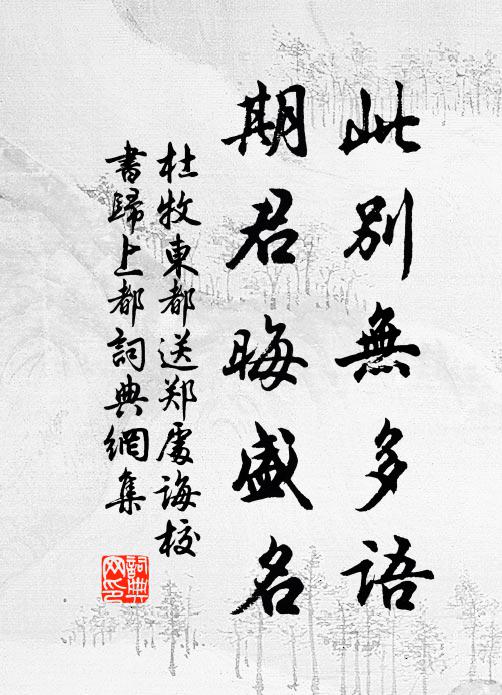 此别無多語
期君晦盛名
杜牧東都送郑處誨校
書歸上都詞典網集
詞典网印